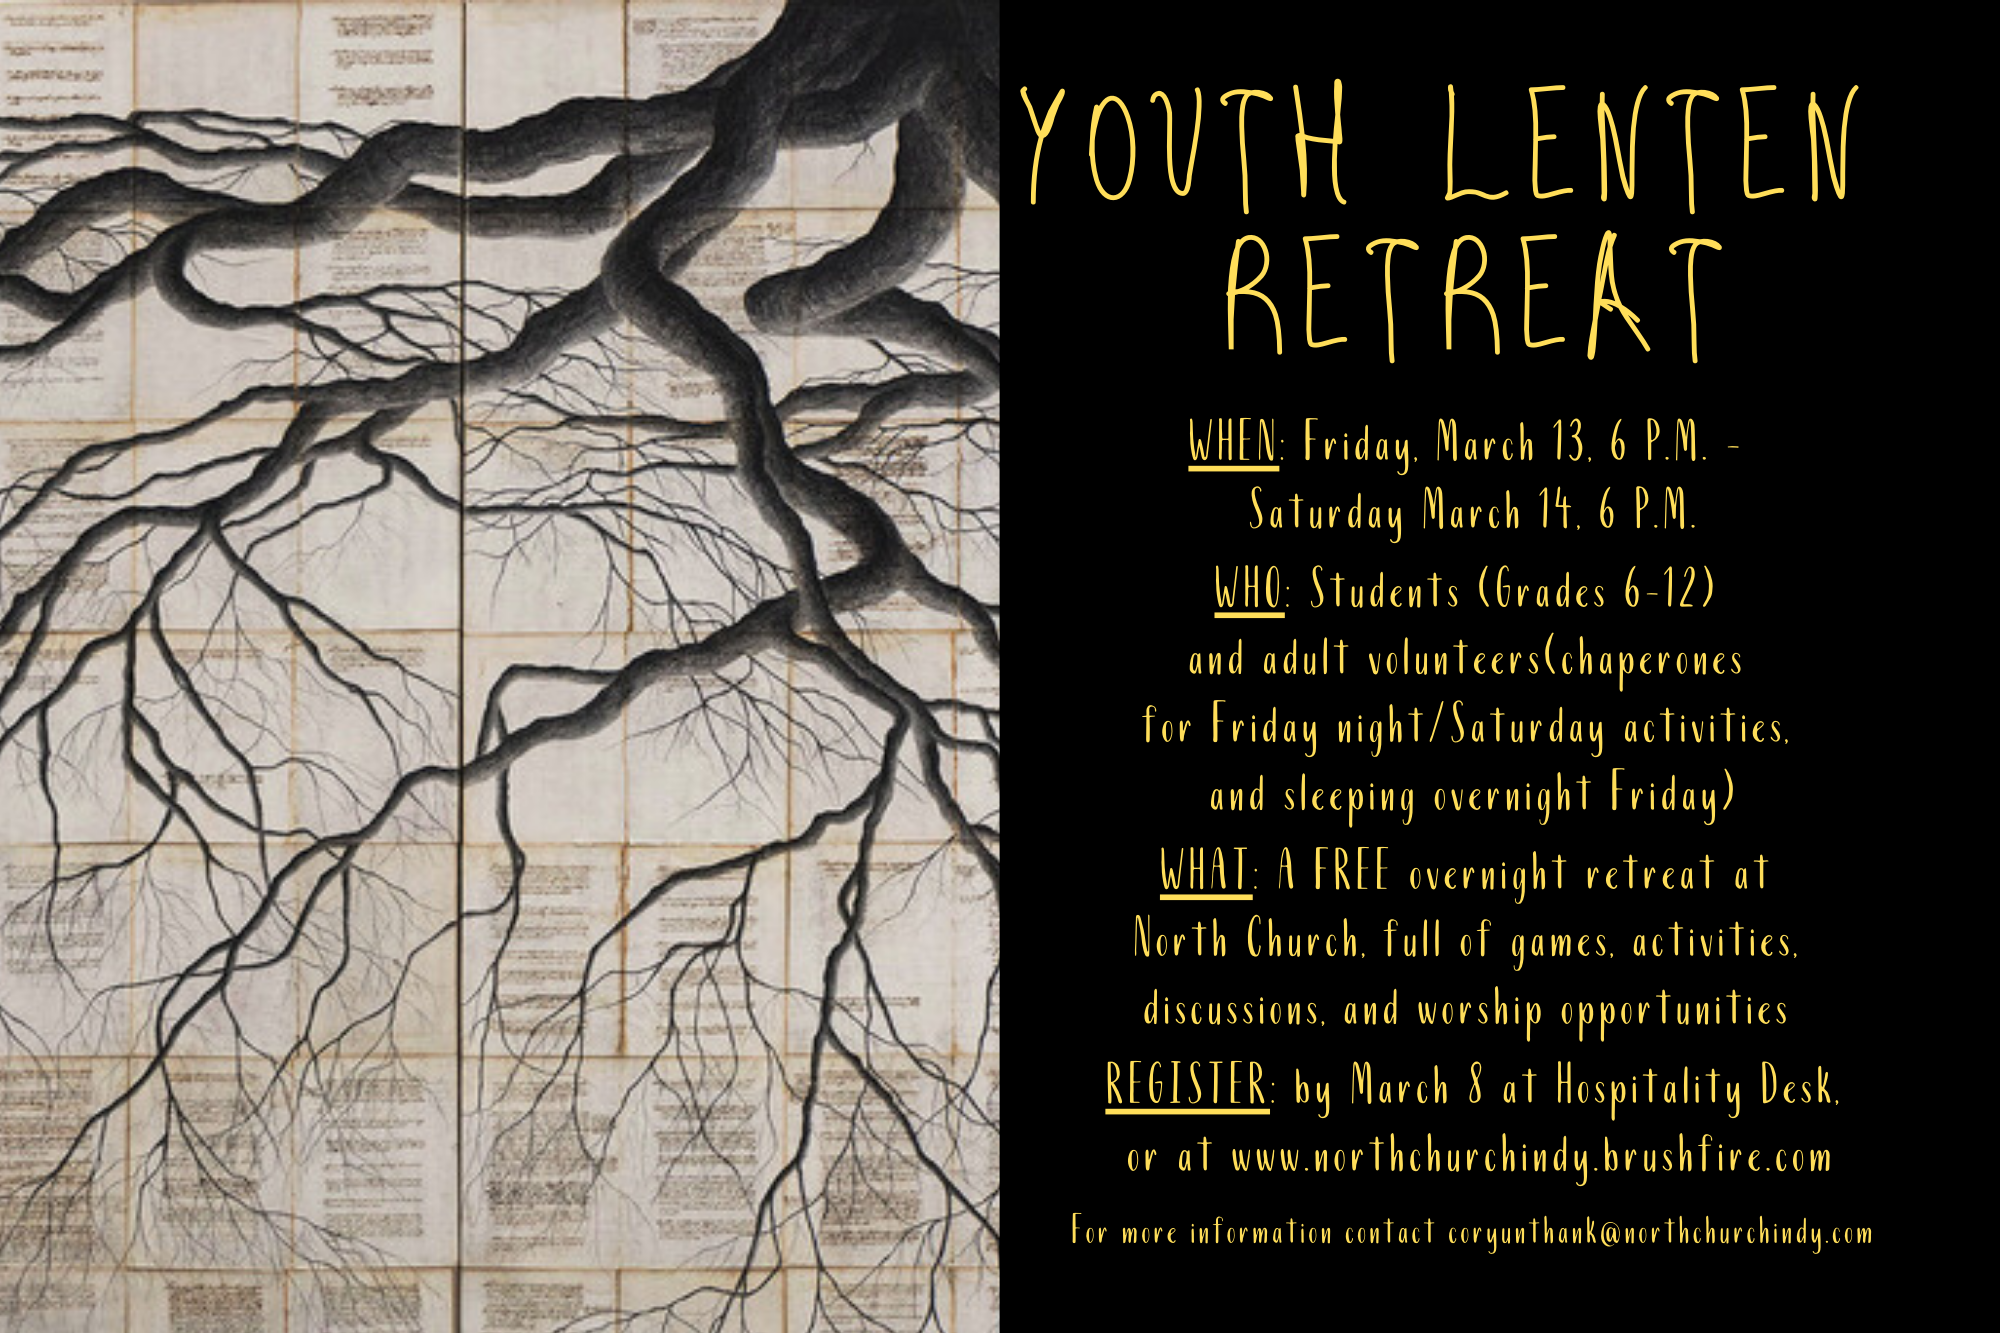 YOUTH LENTEN
RETREAT
WHEN: Friday, March 13, 6 P.M. -
Saturday March 14, 6 P.M.
WHO: Students (Grades 6-12)
and adult volunteers(chaperones
for Friday night/Saturday activities,
and sleeping overnight Friday)
WHAT: A FREE overnight retreat at
North Church, full of games, activities,
discussions, and worship opportunities
REGISTER: by March 8 at Hospitality Desk,
or at www.northchurchindy.brushfire.com
For more information contact coryunthank@northchurchindy.com